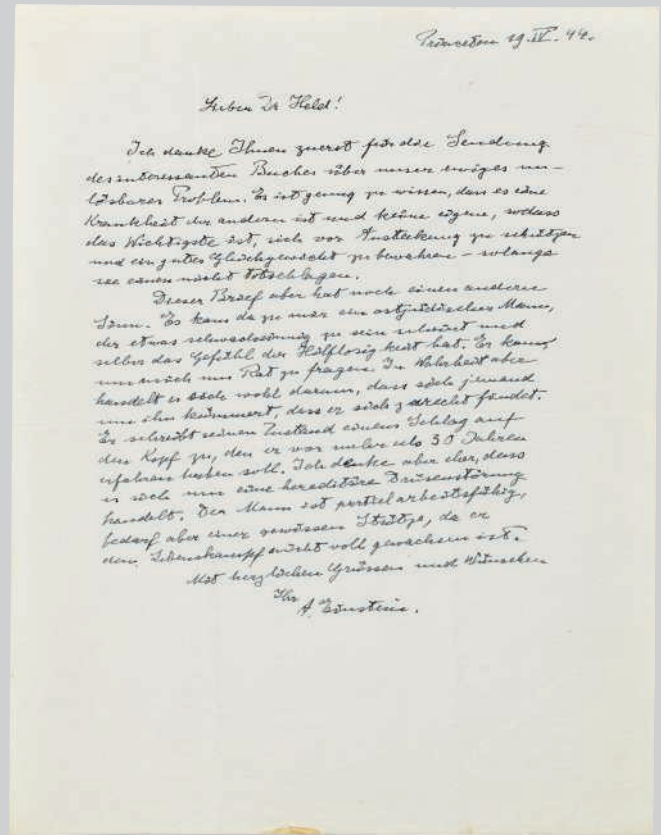 Princeton 19.IV.44.
Lieber Dr Held!
Ich danke Ihnen zuerst für die Sendung
des interessanten Buches über unser ewiges un-
lösbares Problem. Es ist genug zu wissen, dass es eine
Krankheit der andern ist und keine eigene, sodass
das Wichtigste ist, sich vor Ansteckung zu schützen
und ein gutes Gleichgewicht zu bewahren – solange
sie einen nicht totschlagen.
Dieser Brief aber hat noch einen anderen
Sinn. Es kam da zu mir ein ostjüdischer Mann,
der etwas schwachsinnig zu sein scheint und
selber das Gefühl der Hilflosigkeit hat. Er kam
um mich um Rat zu fragen. In Wahrheit aber
handelt es sich wohl darum, dass sich jemand
um ihn kümmert, dass er sich zurecht findet.
Er schreibt seinen Zustand einem Schlag auf
den Kopf zu, den er vor mehr als 30 Jahren
erfahren haben soll. Ich denke aber eher, dass
es sich um eine hereditäre Drüsenstörung
handelt. Der Mann ist partiel arbeitsfähig,
bedarf aber einer gewissen Stütze, da er
dem Lebenskampf nicht voll gewachsen ist.
Mit herzlichen Grüssen und Wünschen
Ihr
A. Einstein.